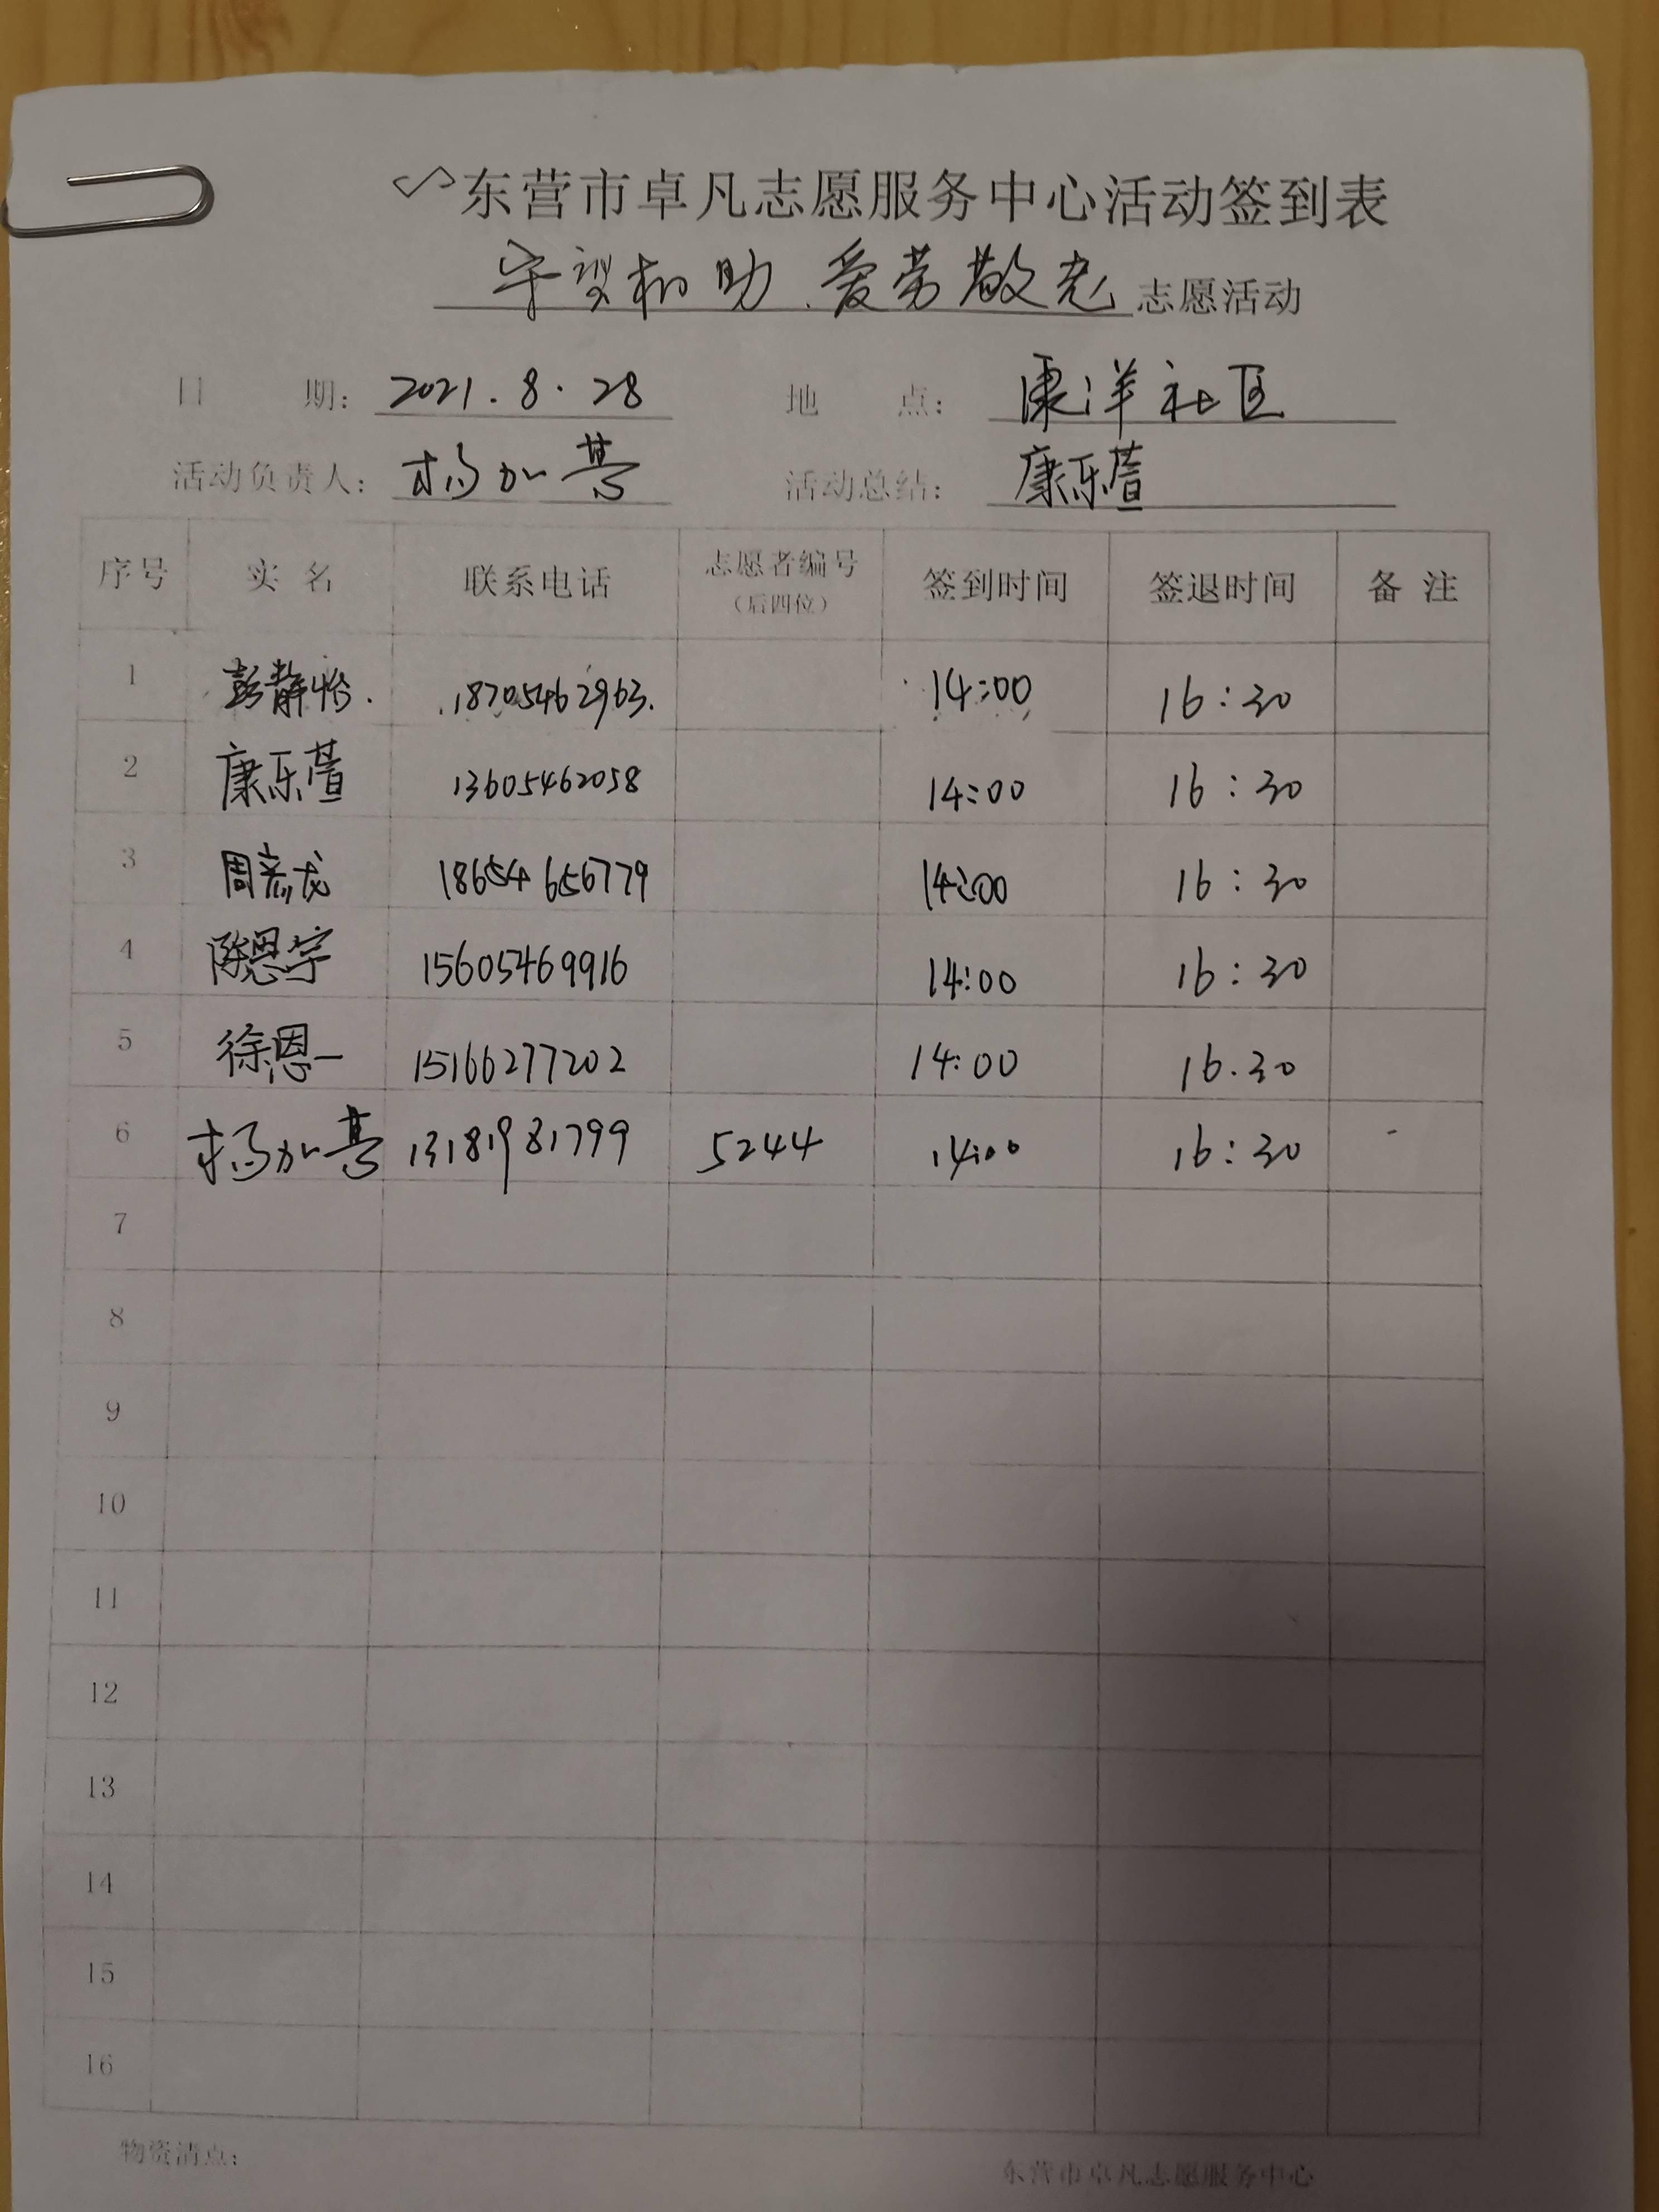 东营市卓凡志愿服务中心活动签到表
守望相助 爱劳敬老 志愿活动
日 期: 2021.8.28 地 点: 康洋社区
活动负责人: 杨加 活动总结: 康乐萱
序号 实名 联系电话 志愿者编号(后四位) 签到时间 签退时间 备注
1 彭静怡. 18705462963. 14:00 16:30
2 康乐萱 13605462058 14:00 16:30
3 周彦龙 18654656779 14:00 16:30
4 陈恩宇 15605469916 14:00 16:30
5 徐恩一 15166277202 14:00 16.30
6 杨加 13181981799 5244 14:00 16:30
7
8
9
10
11
12
13
14
15
16
物资清点: 东营市卓凡志愿服务中心